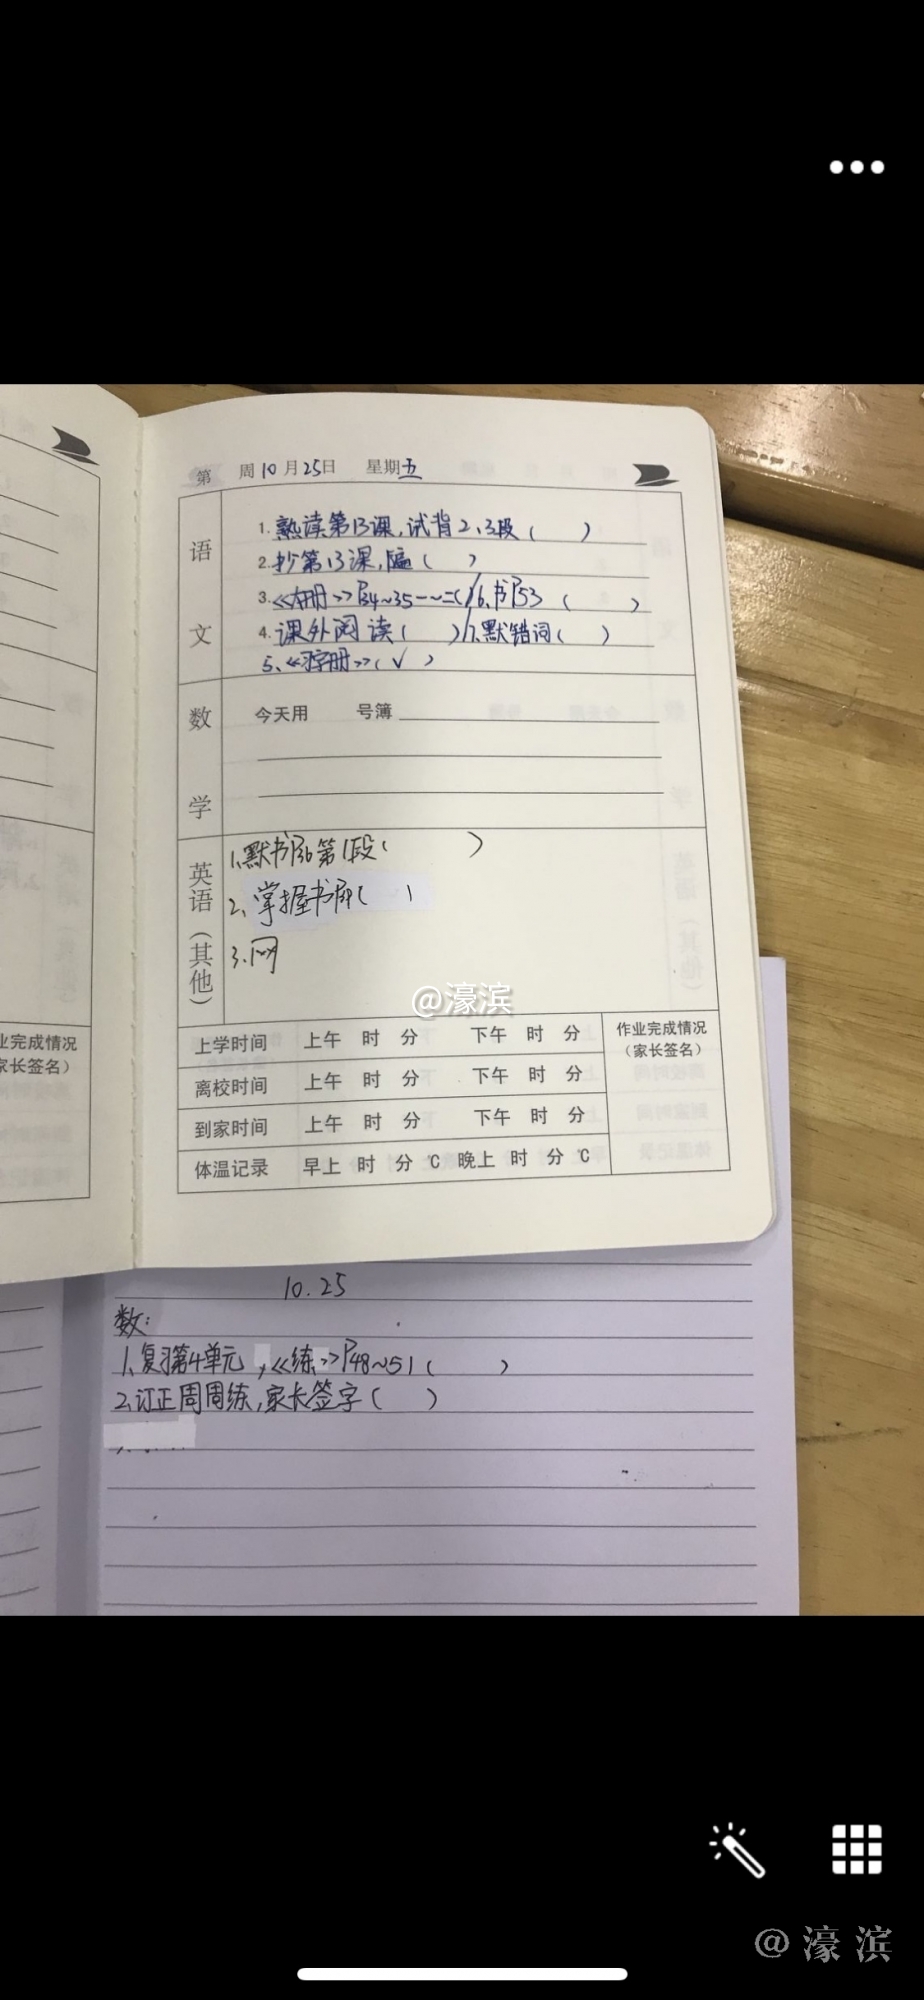 第 周10月25日 星期五
语文
1.熟读第13课,试背2、3段( )
2.抄第13课,1遍( )
3.《大册》P34~35一~二( )/6、书P53 ( )
4.课外阅读( )/7.默错词( )
5、《习字册》(√)
数学
今天用 号簿
英语(其他)
1.默书P36第1段( )
2、掌握书 ( )
3.网
@濠滨
上学时间 上午 时 分 下午 时 分 作业完成情况
(家长签名)
离校时间 上午 时 分 下午 时 分
到家时间 上午 时 分 下午 时 分
体温记录 早上 时 分 ℃ 晚上 时 分 ℃
业完成情况
家长签名)
10.25
数:
1.复习第4单元,《练》P48~51( )
2.订正周周练,家长签字( )
@濠滨